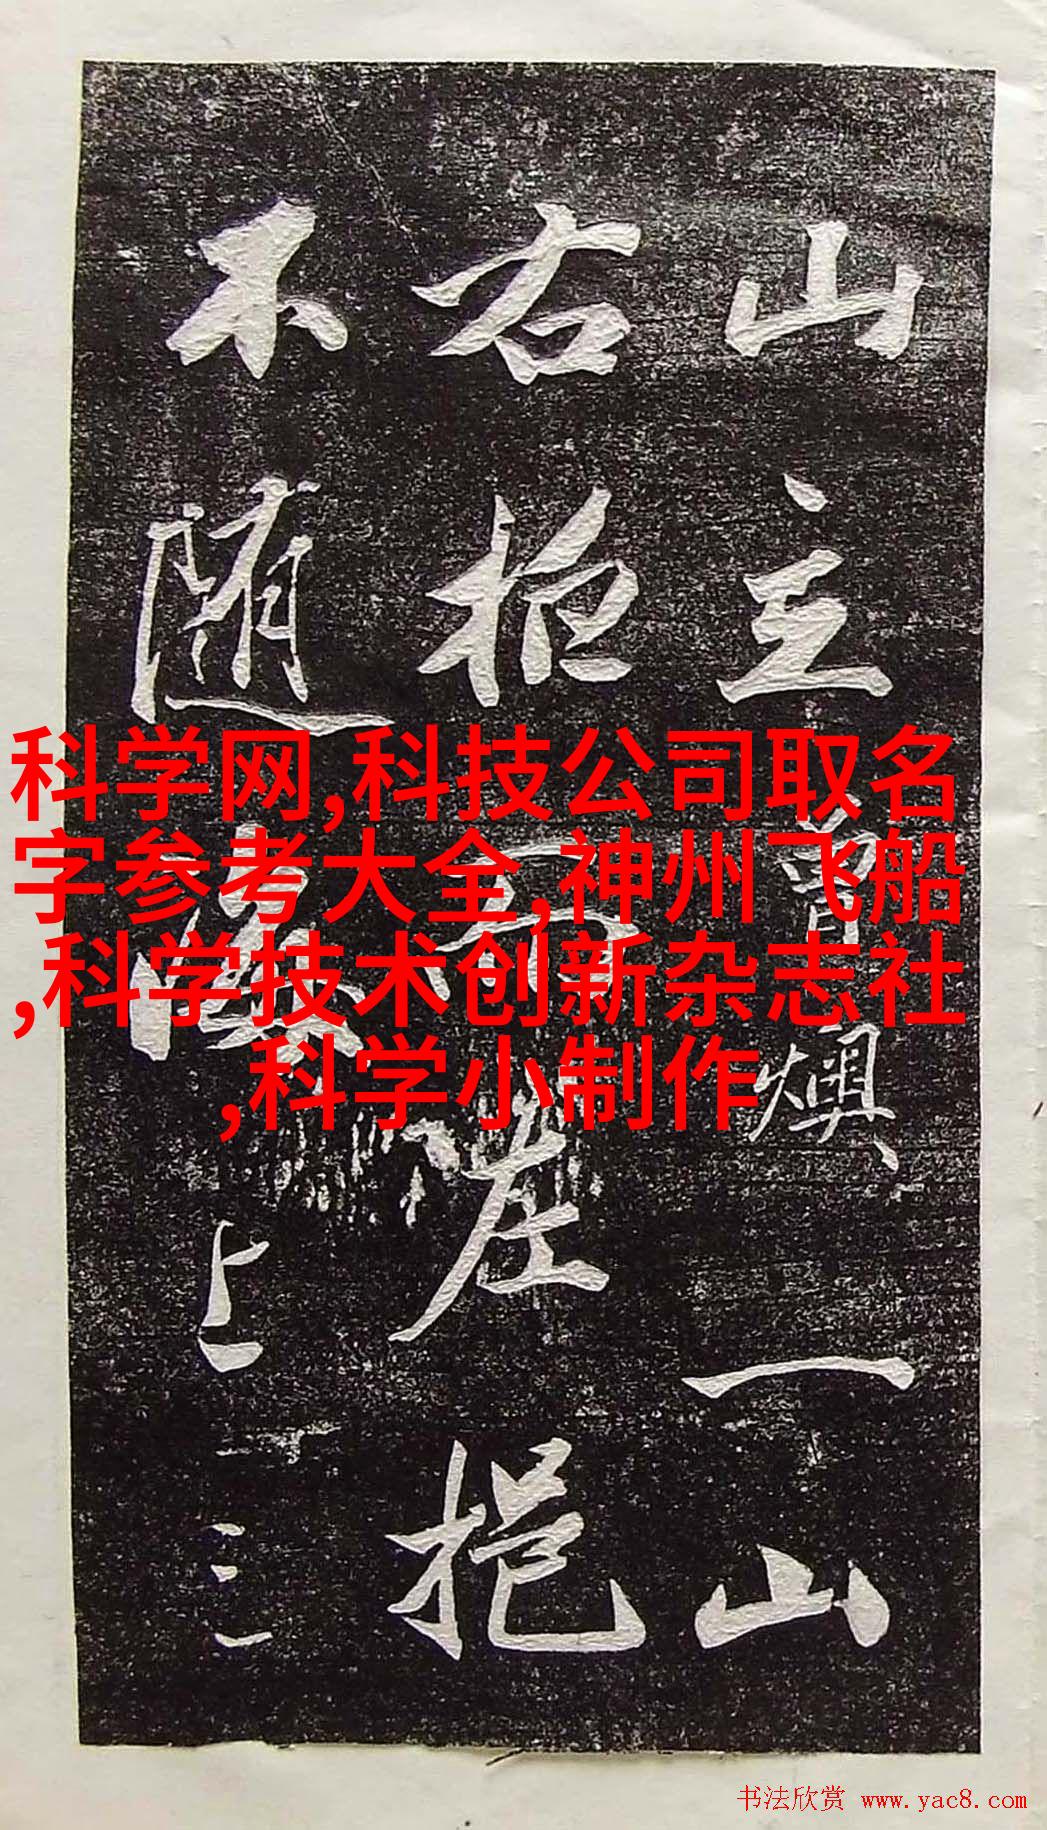 山主曾燠一山
右拒
左挹
不随
上三
科学网,科技公司取名
字参考大全,神州飞船
,科学技术创新杂志社
,科学小制作
书法欣赏 www.yac8.com